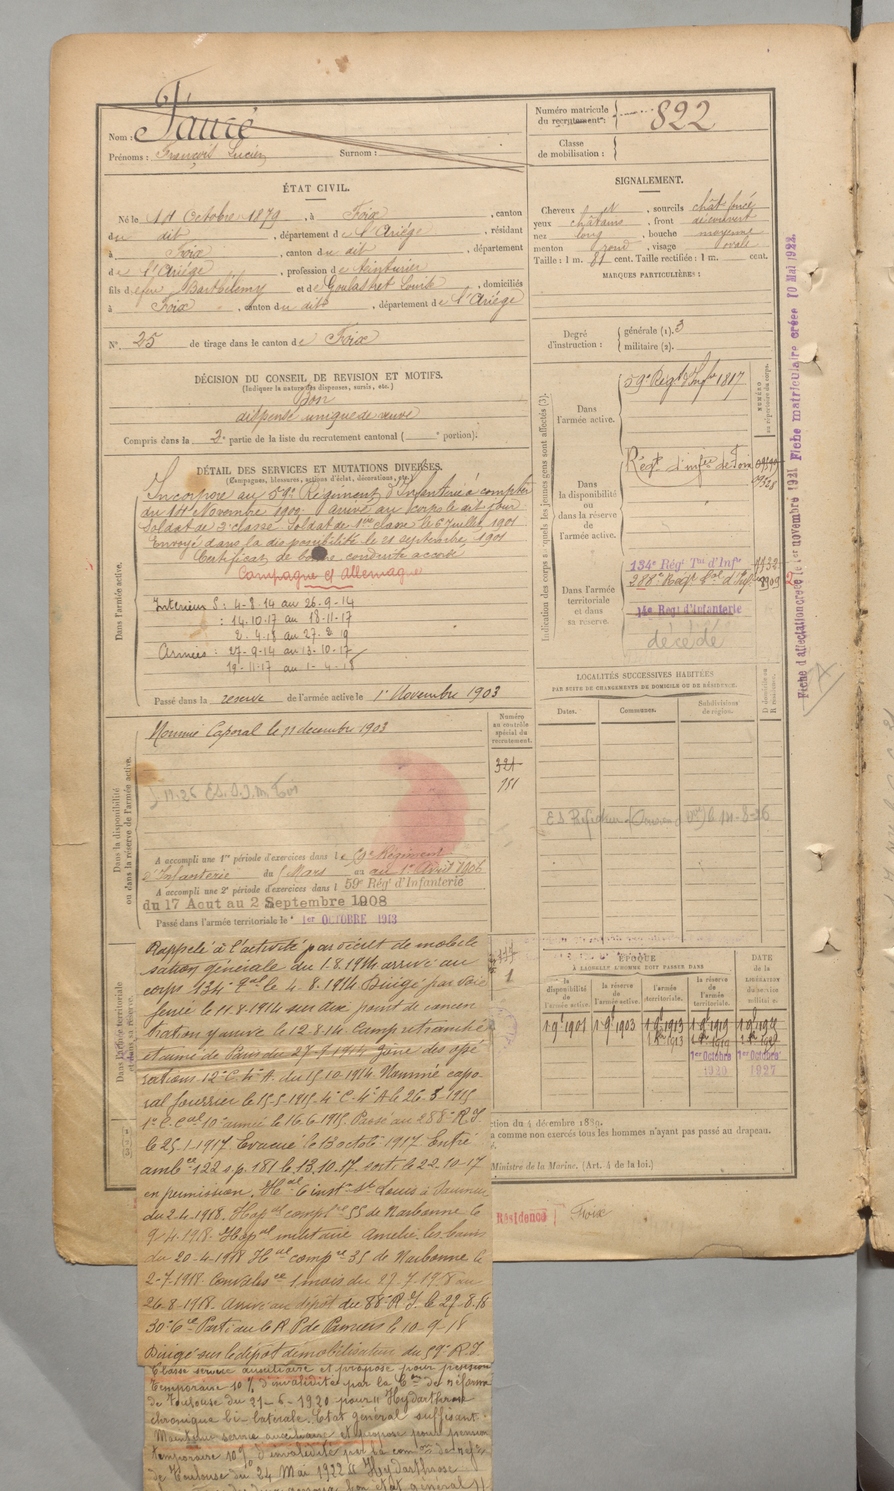 Nom : Fauré
Prénoms : François Lucien Surnom :
Numéro matricule du recrutement : 822
Classe de mobilisation :
ÉTAT CIVIL.
Né le Octobre 1879, à Foix, canton
du dit, département de l'Ariége, résidant
à Foix, canton du dit, département
de l'Ariége, profession de teinturier
fils de feu Barthélemy et de Louise, domiciliés
à Foix, canton du dit, département de l'Ariége
N° 25 de tirage dans le canton de Foix
SIGNALEMENT.
Cheveux et sourcils chât. foncé
yeux châtains, front découvert
nez long, bouche moyenne
menton rond, visage ovale
Taille : 1 m. 81 cent. Taille rectifiée : 1 m. cent.
MARQUES PARTICULIÈRES :
Degré d'instruction : générale (1). 3
militaire (2).
DÉCISION DU CONSEIL DE REVISION ET MOTIFS.
(Indiquer la nature des dispenses, sursis, etc.)
Bon
dispensé unique de veuve
Compris dans la 2e partie de la liste du recrutement cantonal ( e portion).
DÉTAIL DES SERVICES ET MUTATIONS DIVERSES.
(Campagnes, blessures, actions d'éclat, décorations, etc.)
Dans l'armée active.
Incorporé au 59e Régiment d'Infanterie à compter
du Novembre 1900. Arrivé au corps le dit jour
Soldat de 2e classe. Soldat de 1ere classe le 6 Juillet 1901
Envoyé dans la disponibilité le 21 septembre 1901
Certificat de bonne conduite accordé
Campagne c/ Allemagne
Intérieur S : 4-8-14 au 26-9-14
: 14-10-17 au 18-11-17
2-4-18 au 27-2-19
Armées : 27-9-14 au 13-10-17
19-11-17 au 1-4-18
Passé dans la réserve de l'armée active le 1er Novembre 1903
Indication des corps auxquels les jeunes gens sont affectés (3).
Dans l'armée active.
59e Régt d'Infie 1817
Dans la disponibilité ou dans la réserve de l'armée active.
Régt d'infie de Foix
Dans l'armée territoriale et dans sa réserve.
134e Régt Tal d'Infie
288e Régt d'Infie
14e Régt d'Infanterie
décédé
Fiche d'affectation créée le 1er novembre 1921 Fiche matriculaire créée 10 Mai 1922.
LOCALITÉS SUCCESSIVES HABITÉES
PAR SUITE DE CHANGEMENTS DE DOMICILE OU DE RÉSIDENCE.
Dates. Communes. Subdivisions de région.
Dans la disponibilité ou dans la réserve de l'armée active.
Numéro au contrôle spécial du recrutement.
Nommé Caporal le 11 décembre 1903
321
A accompli une 1re période d'exercices dans le 59e Régiment
d'Infanterie du Mars au 1er Avril 1906
A accompli une 2e période d'exercices dans le 59e Rég' d'Infanterie
du 17 Aout au 2 Septembre 1908
Passé dans l'armée territoriale le 1er OCTOBRE 1913
Dans l'armée territoriale et dans sa réserve.
1
ÉPOQUE
À LAQUELLE L'HOMME DOIT PASSER DANS
la disponibilité de l'armée active. la réserve de l'armée active. l'armée territoriale. la réserve de l'armée territoriale.
DATE de la LIBÉRATION du service militaire.
1 9bre 1901 1 9bre 1903 1 9bre 1913 1 9bre 1919
1er Octobre 1920 1er Octobre 1927
Rappelé à l'activité par décret de mobili
sation générale du 1.8.1914 arrivé au
corps 134e le 4.8.1914 Dirigé par voie
ferrée le 11.8.1914 sur aux point de concen
tration y arrivé le 12.8.14. Camp retranché
et armée de Paris du 27-9-1914 zône des opé
rations 12e C. 4e A. du 15.10.1914 Nommé capo
ral fourrier le 15-5-1915
10e armée le 16.6.1915. Passé au 288e R.I.
le 25.1.1917 Evacué le 13 octob 1917. Entré
ambce 122 s.p. 181 le 13.10.17 sorti le 22.10.17
en permission. St Louis à Vannes
du 2.4.1918. Hopal compl 55 de Narbonne le
9.4.1918 Hopal militaire Amélie les bains
du 20-4-1918 compre 35 de Narbonne le
2-7-1918 Convalesce 1 mois du 27.7.1918 au
26-8-1918. Arrivé au dépôt du 88e R.I. le 27.8.18
30e Cie Parti au C R P de Pamiers le 10-9-18
Dirigé sur le dépôt démobilisateur du 59e R.I.
Classé service auxiliaire et proposé pour pension
temporaire 10% d'invalidité par la Con de réforme
de Toulouse du 21-6-1920 pour Hydarthrose
chronique bi-latérale. Etat général suffisant
Maintenu service auxiliaire et proposé pour pension
temporaire 10% d'invalidité par la comon de réfe
de Toulouse du 24 Mai 1922 Hydarthrose
bon état général
ction du 4 décembre 1889.
a comme non exercés tous les hommes n'ayant pas passé au drapeau.
Ministre de la Marine. (Art. 4 de la loi.)
Résidence Foix